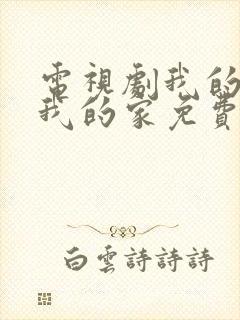 電視劇我的
我的家免費
白雲詩詩詩